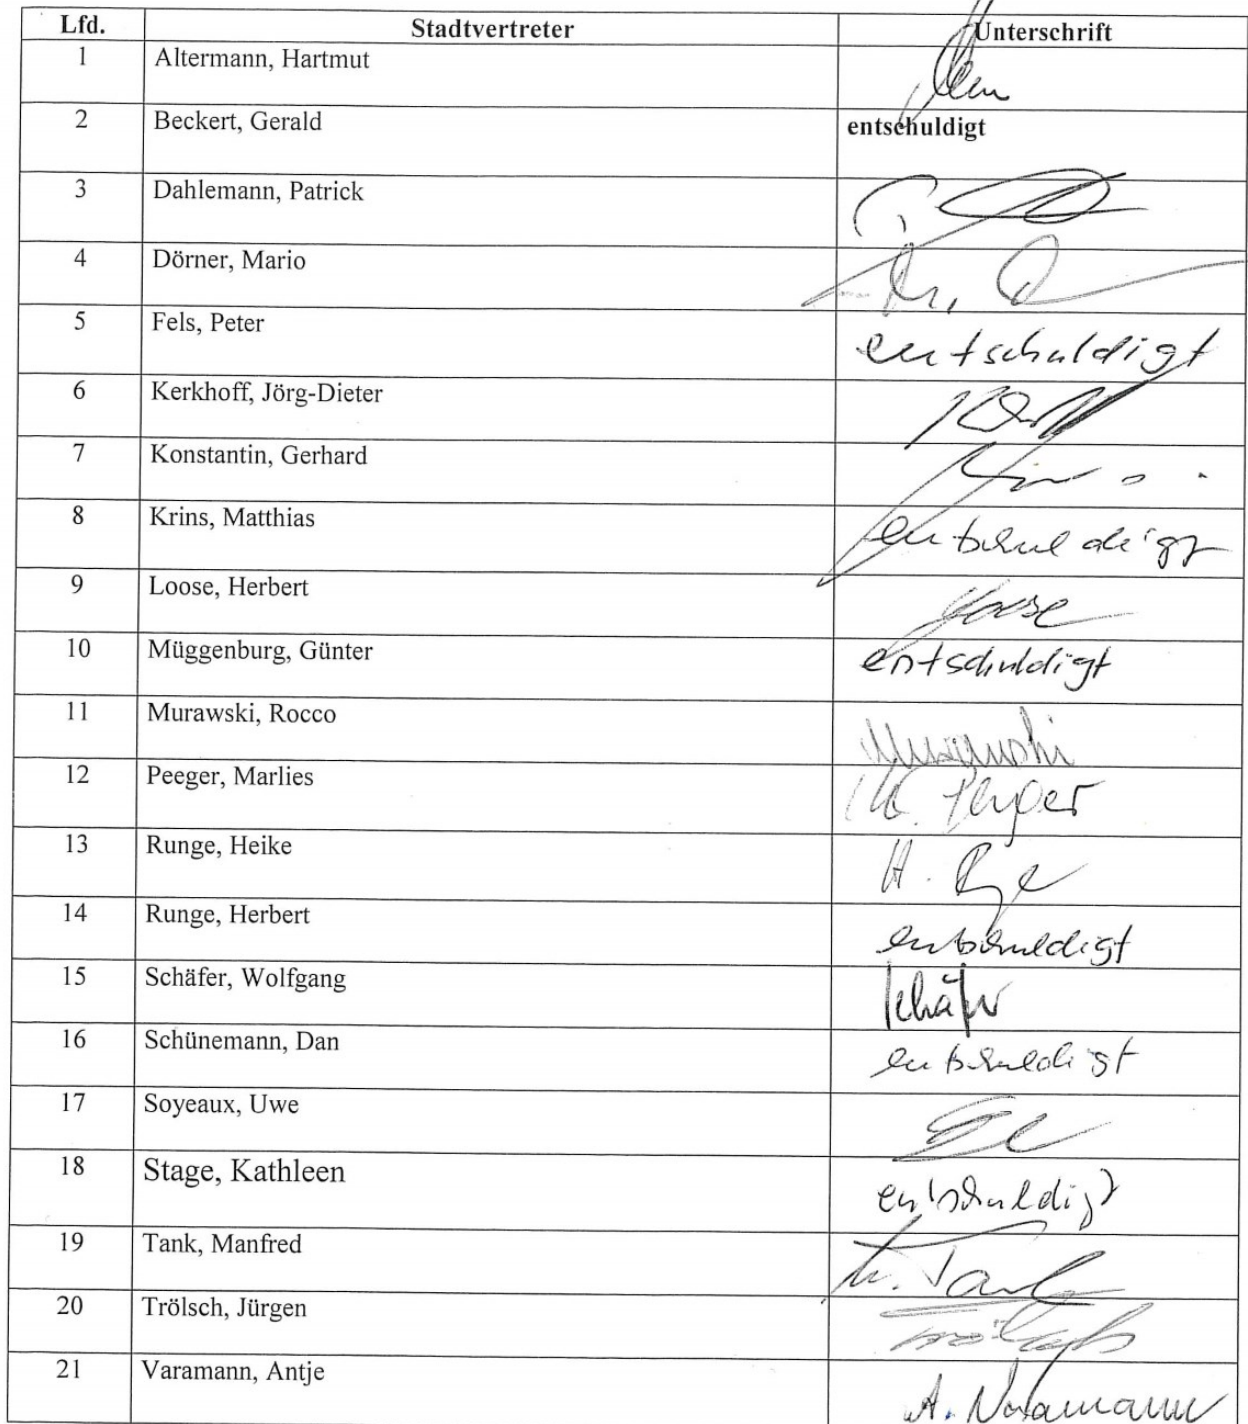 Lfd. Stadtvertreter Unterschrift
1 Altermann, Hartmut
2 Beckert, Gerald entschuldigt
3 Dahlemann, Patrick
4 Dörner, Mario
5 Fels, Peter entschuldigt
6 Kerkhoff, Jörg-Dieter
7 Konstantin, Gerhard
8 Krins, Matthias entschuldigt
9 Loose, Herbert Loose
10 Müggenburg, Günter entschuldigt
11 Murawski, Rocco Murawski
12 Peeger, Marlies M. Peeger
13 Runge, Heike H. Runge
14 Runge, Herbert entschuldigt
15 Schäfer, Wolfgang Schäfer
16 Schünemann, Dan entschuldigt
17 Soyeaux, Uwe
18 Stage, Kathleen entschuldigt
19 Tank, Manfred M. Tank
20 Trölsch, Jürgen Trölsch
21 Varamann, Antje A. Varamann